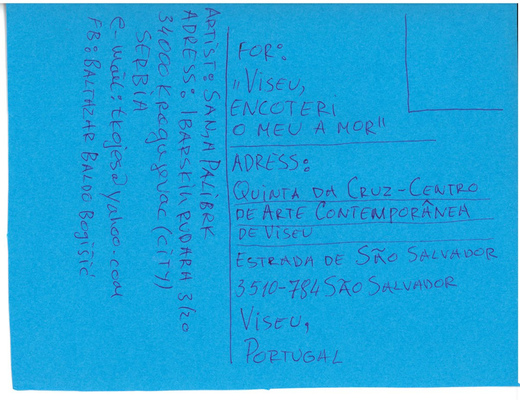 ARTIST: SANJA PALIBRK
ADRESS: IBARSKIH RUDARA 3/20
34000 Kragujevac (CITY)
SERBIA
e-mail: tkojesa@yahoo.com
FB: BALTAZAR BALDO Bogišić
FOR:
"VISEU,
ENCOTERI
O MEU A MOR"
ADRESS:
QUINTA DA CRUZ-CENTRO
DE ARTE CONTEMPORÂNEA
DE VISEU
ESTRADA DE SÃO SALVADOR
3510-784 SÃO SALVADOR
VISEU,
PORTUGAL